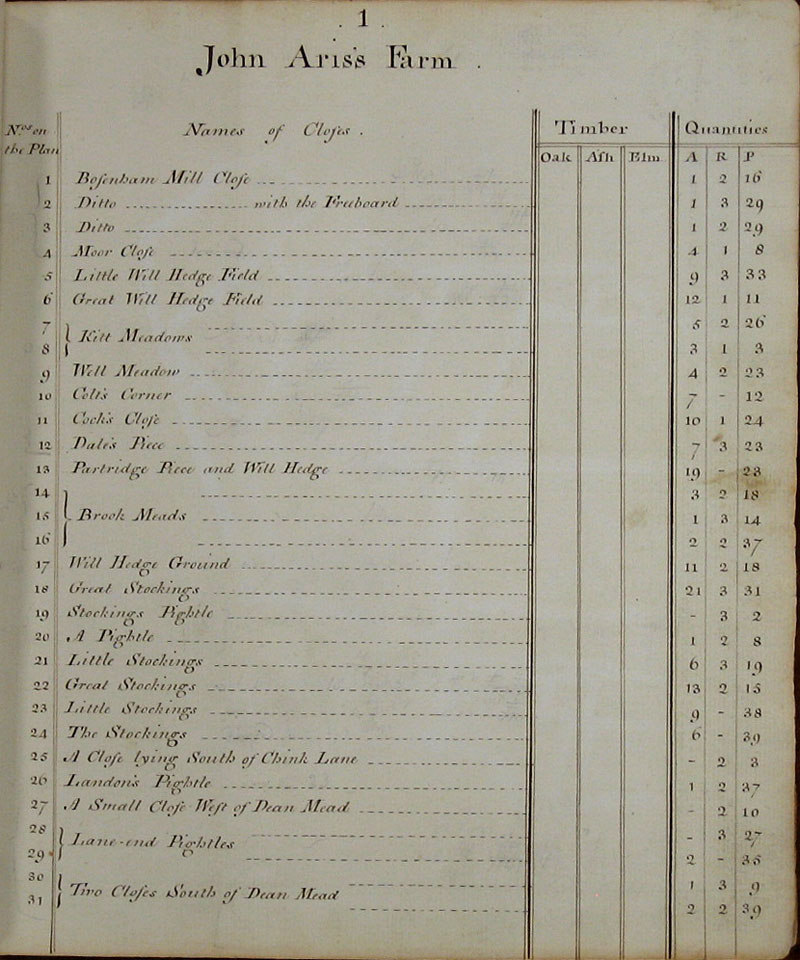 . 1 .
John Aris's Farm .
Nos. on the Plan
Names of Closes .
Timber
Quantities
Oak Ash Elm
A R P
1 Bosenham Mill Close 1 2 16
2 Ditto with the Freeboard 1 3 29
3 Ditto 1 2 29
4 Moor Close 4 1 8
5 Little Will Hedge Field 9 3 33
6 Great Will Hedge Field 12 1 11
7 5 2 26
Kill Meadows
8 3 1 3
9 Well Meadow 4 2 23
10 Colt's Corner 7 - 12
11 Cock's Close 10 1 24
12 Dale's Piece 7 3 23
13 Partridge Piece and Will Hedge 19 - 23
14 3 2 18
15 Brook Meads 1 3 14
16 2 2 37
17 Will Hedge Ground 11 2 18
18 Great Stockings 21 3 31
19 Stockings Pightle - 3 2
20 A Pightle 1 2 8
21 Little Stockings 6 3 19
22 Great Stockings 13 2 15
23 Little Stockings 9 - 38
24 The Stockings 6 - 39
25 A Close lying South of Chink Lane - 2 3
26 Landon's Pightle 1 2 37
27 A Small Close West of Dean Mead - 2 10
28 - 3 27
Lane-end Pightles
29 2 - 35
30 1 3 9
Two Closes South of Dean Mead
31 2 2 39